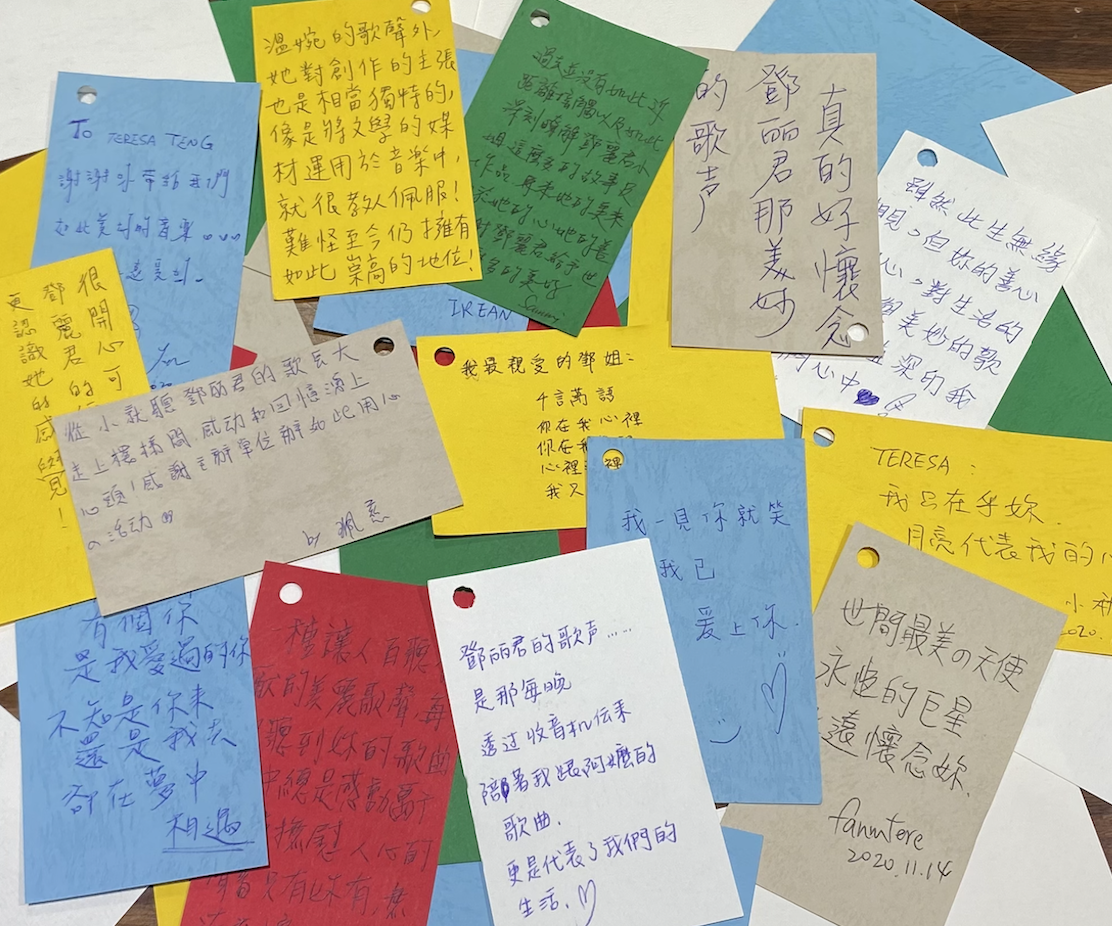 To TERESA TENG
謝謝妳帶給我們
如此美好的音樂
溫婉的歌聲外,
她對創作的主張
也是相當獨特的,
像是將文學的媒
材運用於音樂中,
就很教人佩服!
難怪至今仍擁有
如此崇高的地位!
過去並沒有如此近
距離接觸以及如此
深刻瞭解鄧麗君小
姐這麼多的故事與
作品
對鄧麗君給予世
Sammi
IREAN
真的好懷念
鄧丽君那美妙
的歌声
雖然此生無緣
相見,但妳的善心
心,對生活的
與美妙的歌
深印我
心中
很開心可
鄧麗君的
更認識她的感
從小就聽鄧丽君的歌長大
走上樓梯間,感动和回憶湧上
心頭!感謝主辦單位辦如此用心
の活动
by 珮慈
我最親愛的鄧姐:
千言萬語
你在我心裡
你在我
心裡
我只
裡
我一見你就笑
我已
爱上你.
TERESA:
我只在乎妳.
月亮代表我的心
小
2020.
有個你
是我愛過的你
不知是你來
還是我去
卻在夢中
相遇
種讓人百聽
的美麗歌聲,每
聽到妳的歌曲
中總是感動屬於
撫慰人心的
只有妳有,
鄧丽君的歌声……
是那每晚
透过收音机伝来
陪著我跟阿嬤的
歌曲.
更是代表了我們的
生活.
世間最美の天使
永遠的巨星
遠懷念妳.
fanmtere
2020.11.14